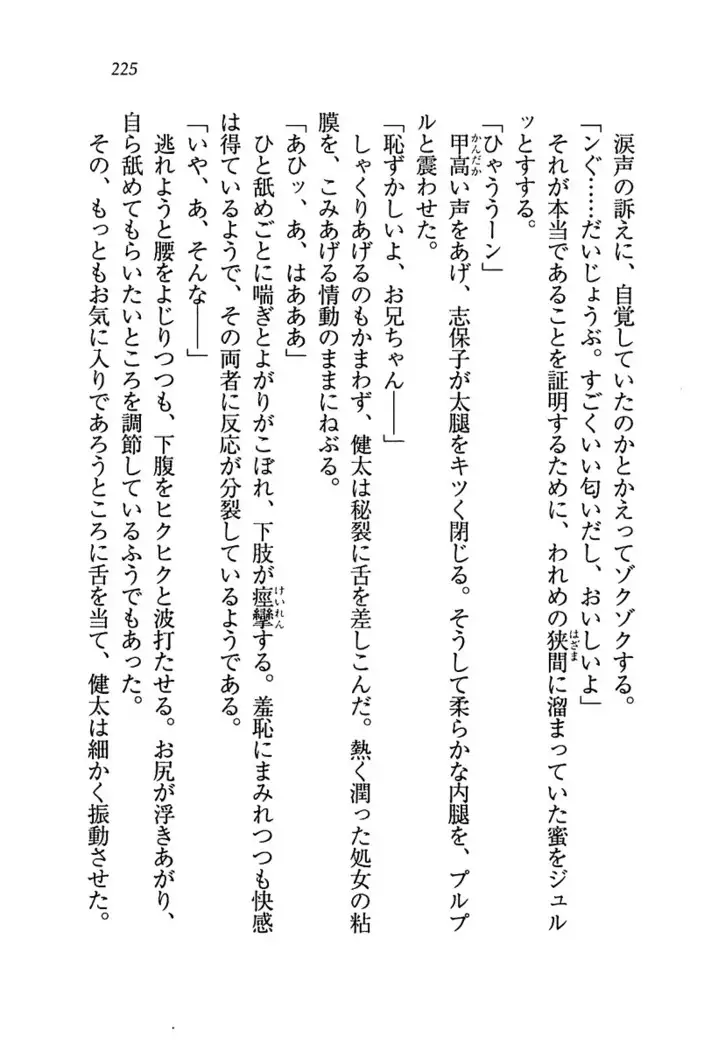 225
涙声の訴えに、自覚していたのかとかえってゾクゾクする。
「ンぐ……だいじょうぶ。すごくいい匂いだし、おいしいよ」
それが本当であることを証明するために、われめの狭間に溜まっていた蜜をジュル
ッとすする。
「ひゃううーン」
甲高い声をあげ、志保子が太腿をキツく閉じる。そうして柔らかな内腿を、プルプ
ルと震わせた。
「恥ずかしいよ、お兄ちゃん――」
しゃくりあげるのもかまわず、健太は秘裂に舌を差しこんだ。熱く潤った処女の粘
膜を、こみあげる情動のままにねぶる。
「あひッ、あ、はあああ」
ひと舐めごとに喘ぎとよがりがこぼれ、下肢が痙攣する。羞恥にまみれつつも快感
は得ているようで、その両者に反応が分裂しているようである。
「いや、あ、そんな――」
逃れようと腰をよじりつつも、下腹をヒクヒクと波打たせる。お尻が浮きあがり、
自ら舐めてもらいたいところを調節しているふうでもあった。
その、もっともお気に入りであろうところに舌を当て、健太は細かく振動させた。